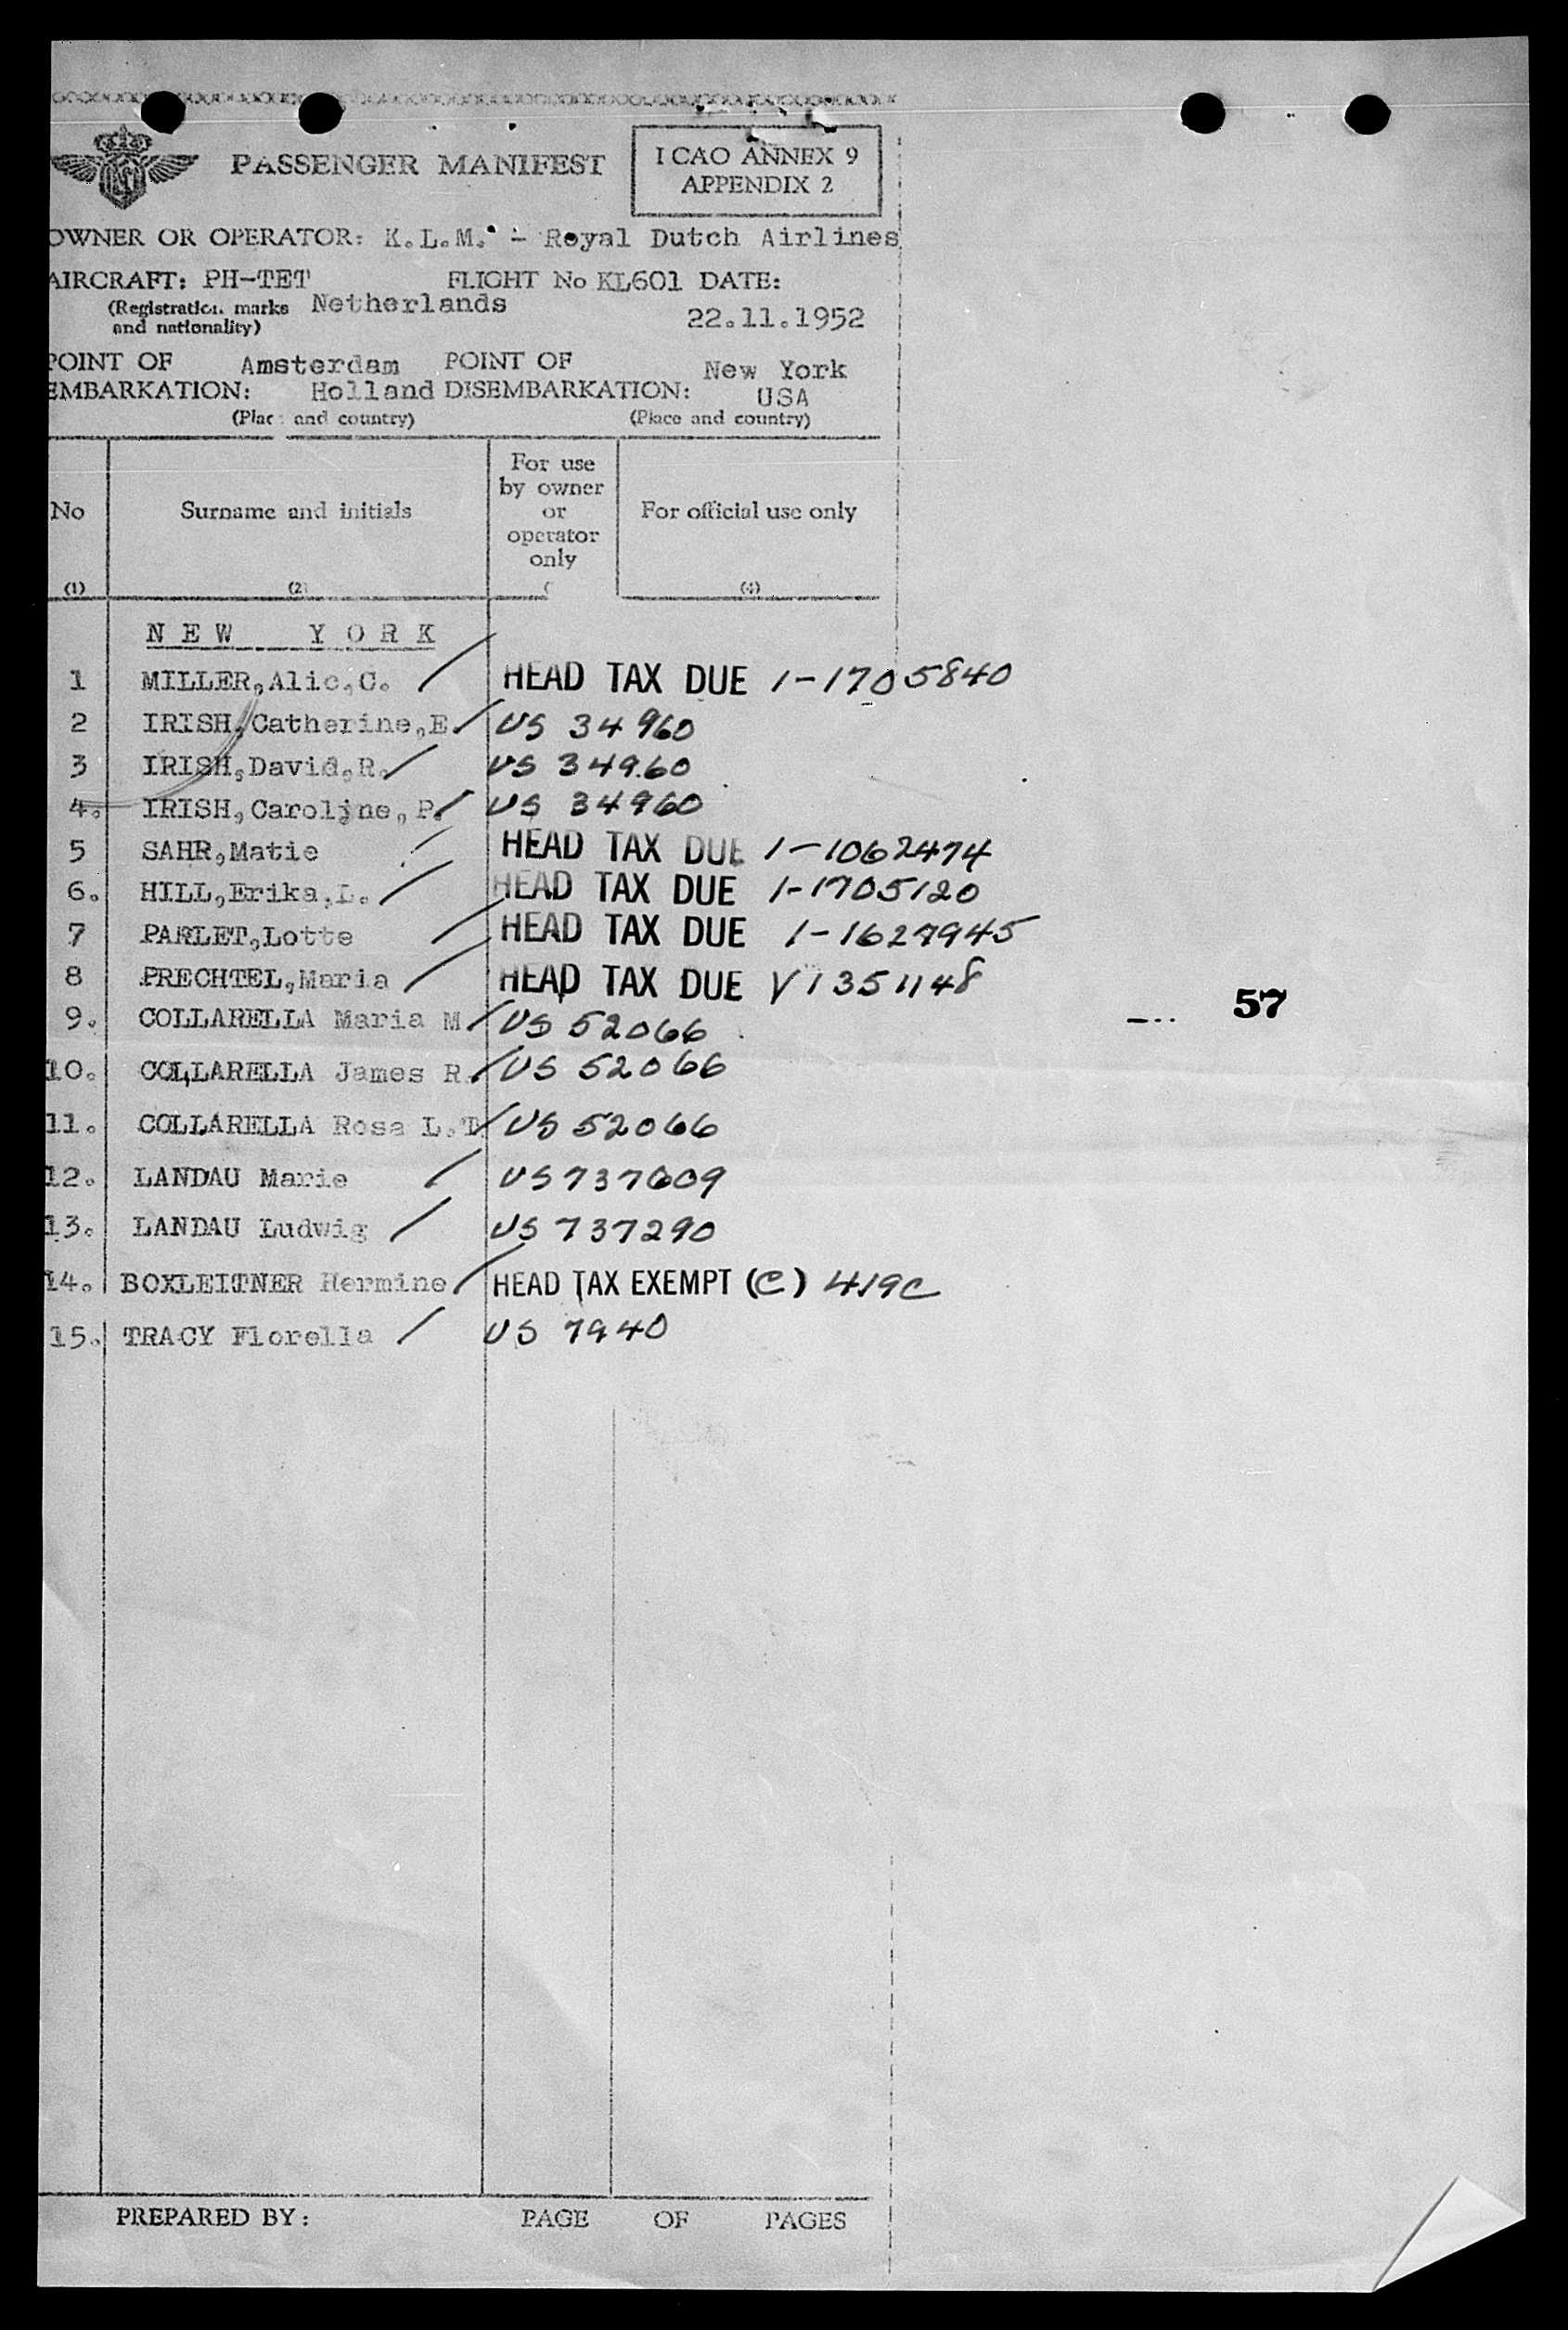 PASSENGER MANIFEST
I CAO ANNEX 9
APPENDIX 2
OWNER OR OPERATOR: K.L.M. - Royal Dutch Airlines
AIRCRAFT: PH-TET FLIGHT No KL601 DATE:
(Registration marks and nationality) Netherlands 22.11.1952
POINT OF EMBARKATION: Amsterdam Holland POINT OF DISEMBARKATION: New York USA
(Place and country) (Place and country)
No Surname and initials For use by owner or operator only For official use only
(1) (2) ( (4)
NEW YORK
1 MILLER,Alic,C. HEAD TAX DUE 1-1705840
2 IRISH,Catherine,E. US 34960
3 IRISH,David,R. US 34960
4. IRISH,Carolyne,P. US 34960
5 SAHR,Matie HEAD TAX DUE 1-1062474
6. HILL,Erika,L. HEAD TAX DUE 1-1705120
7 PARLET,Lotte HEAD TAX DUE 1-1627945
8 PRECHTEL,Maria HEAD TAX DUE V1351148
57
9. COLLARELLA Maria M US 52066
10. COLLARELLA James R. US 52066
11. COLLARELLA Rosa L. US 52066
12. LANDAU Marie US 737609
13. LANDAU Ludwig US 737290
14. BOXLEITNER Hermine HEAD TAX EXEMPT (C) 419C
15. TRACY Florella US 7940
PREPARED BY: PAGE OF PAGES